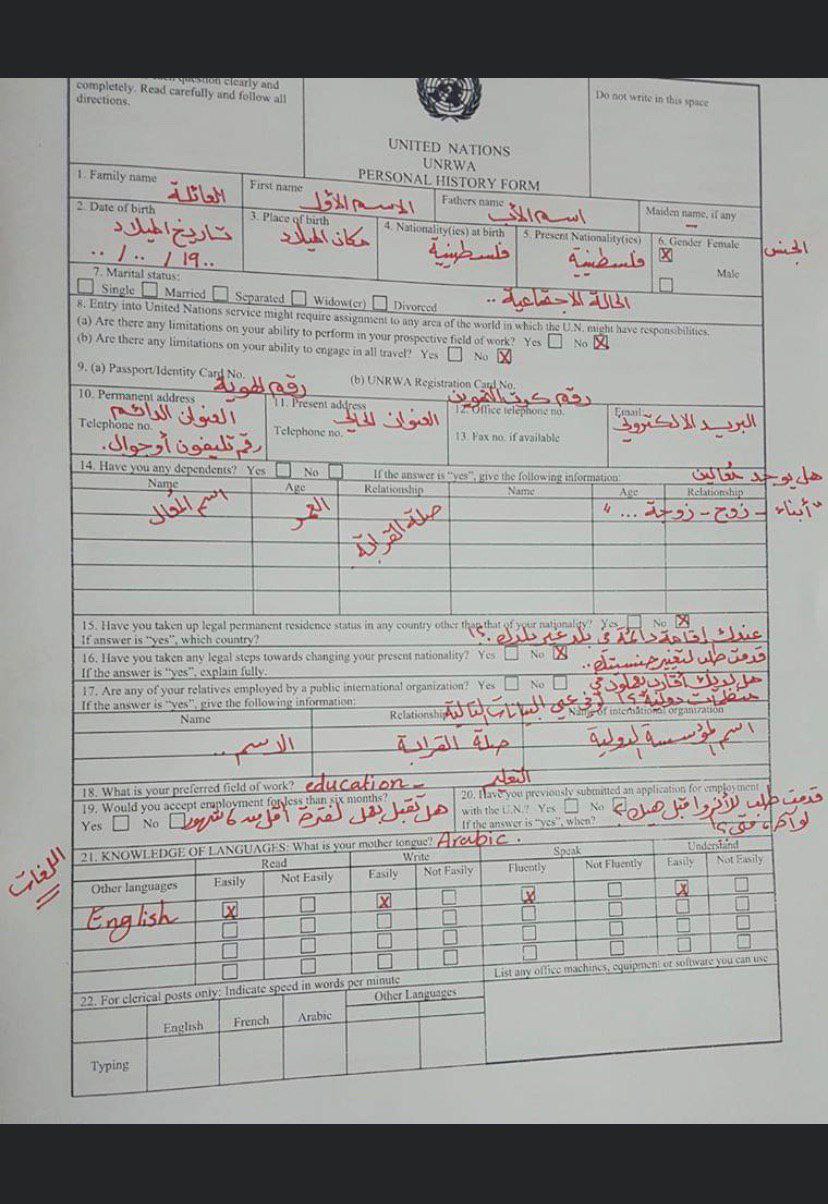 question clearly and
completely. Read carefully and follow all
directions.
Do not write in this space
UNITED NATIONS
UNRWA
PERSONAL HISTORY FORM
1. Family name العائلة
First name الاسم الأول
Fathers name اسم الأب
Maiden name, if any –
2. Date of birth تاريخ الميلاد
.. / .. / 19..
3. Place of birth مكان الميلاد
4. Nationality(ies) at birth فلسطينية
5. Present Nationality(ies) فلسطينية
6. Gender Female X
Male
الجنس
7. Marital status:
Single Married Separated Widow(er) Divorced الحالة الاجتماعية ..
8. Entry into United Nations service might require assignment to any area of the world in which the U.N. might have responsibilities.
(a) Are there any limitations on your ability to perform in your prospective field of work? Yes No X
(b) Are there any limitations on your ability to engage in all travel? Yes No X
9. (a) Passport/Identity Card No. رقم الهوية
(b) UNRWA Registration Card No. رقم كرت التموين
10. Permanent address
العنوان الدائم
Telephone no.
رقم تليفون أو جوال.
11. Present address
العنوان الحالي
Telephone no.
12. Office telephone no.
13. Fax no. if available
Email:
البريد الالكتروني
14. Have you any dependents? Yes No If the answer is "yes", give the following information: هل يوجد معالين
Name Age Relationship Name Age Relationship
"أبناء - زوج - زوجة ..."
اسم المعال العمر صلة القرابة
15. Have you taken up legal permanent residence status in any country other than that of your nationality? Yes No X
If answer is "yes", which country? عندك إقامة دائمة في بلد غير بلدك ؟!
16. Have you taken any legal steps towards changing your present nationality? Yes No X قدمت طلب لتغيير جنسيتك ..
If the answer is "yes", explain fully.
17. Are any of your relatives employed by a public international organization? Yes No هل لديك أقارب يعملون في
If the answer is "yes", give the following information: منظمات دولية ؟! البيانات التالية
Name Relationship Name of international organization
الاسم .. صلة القرابة اسم المؤسسة الدولية
18. What is your preferred field of work? education - التعليم
19. Would you accept employment for less than six months?
Yes No هل تقبل بعمل لفترة أقل من 6 شهور
20. Have you previously submitted an application for employment
with the U.N.? Yes No قدمت طلب للأونروا قبل هيك ؟
If the answer is "yes", when?
21. KNOWLEDGE OF LANGUAGES: What is your mother tongue? Arabic .
اللغات
Read Write Speak Understand
Other languages Easily Not Easily Easily Not Easily Fluently Not Fluently Easily Not Easily
English X X X X
22. For clerical posts only: Indicate speed in words per minute
List any office machines, equipment or software you can use
English French Arabic Other Languages
Typing